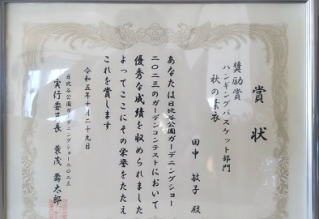 賞状
奨励賞
ハンギングバスケット部門
秋の素衣
田中 敏子 殿
あなたは日比谷公園ガーデニングショー
二〇二三のガーデンコンテストにおいて
優秀な成績を収められました
よってここにその栄誉をたたえ
これを賞します
令和五年十月二十九日
日比谷公園ガーデニングショー二〇二三
実行委員長 蓑茂 壽太郎